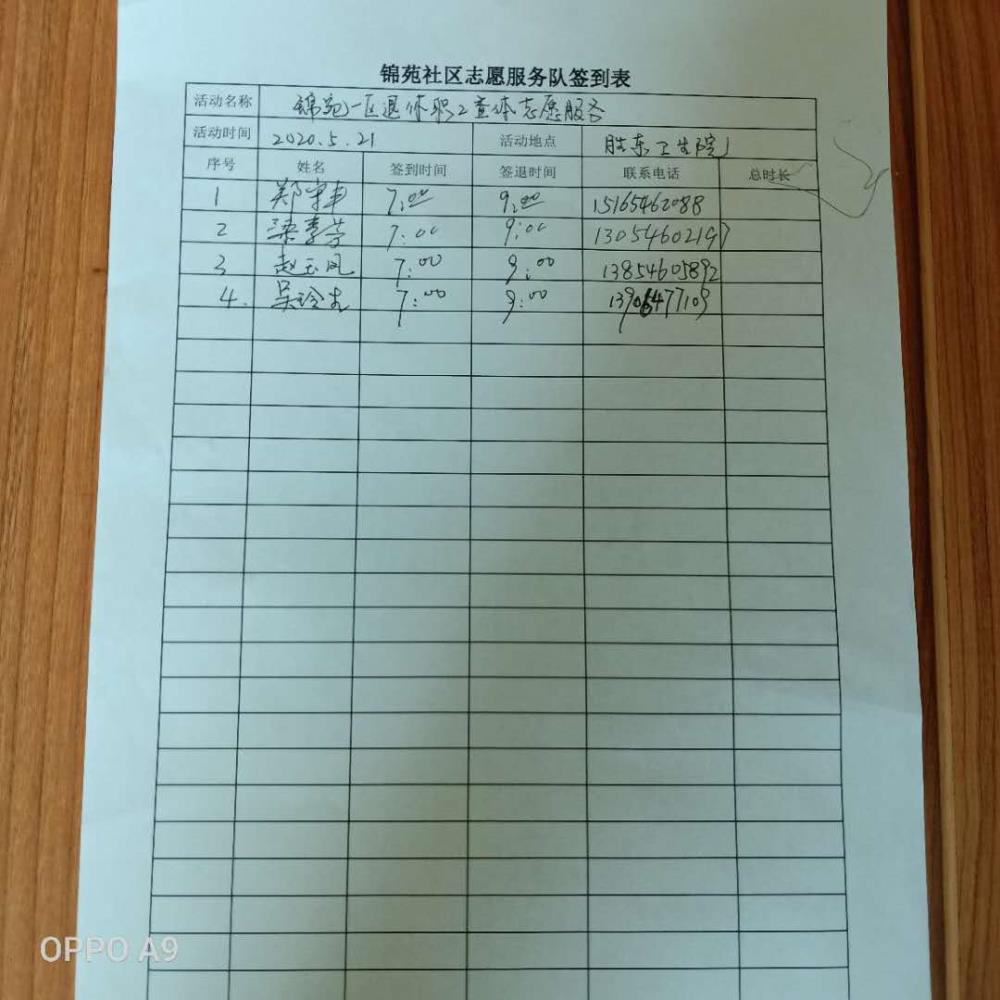 锦苑社区志愿服务队签到表
活动名称 锦苑一区退休职工查体志愿服务
活动时间 2020.5.21 活动地点 胜东卫生院
序号 姓名 签到时间 签退时间 联系电话 总时长
1 7:00 9:00 15165462088
2 梁秀芳 7:00 9:00 13054602197
3 赵玉凤 7:00 9:00 13854605892
4. 7:00 9:00 13906477109
OPPO A9